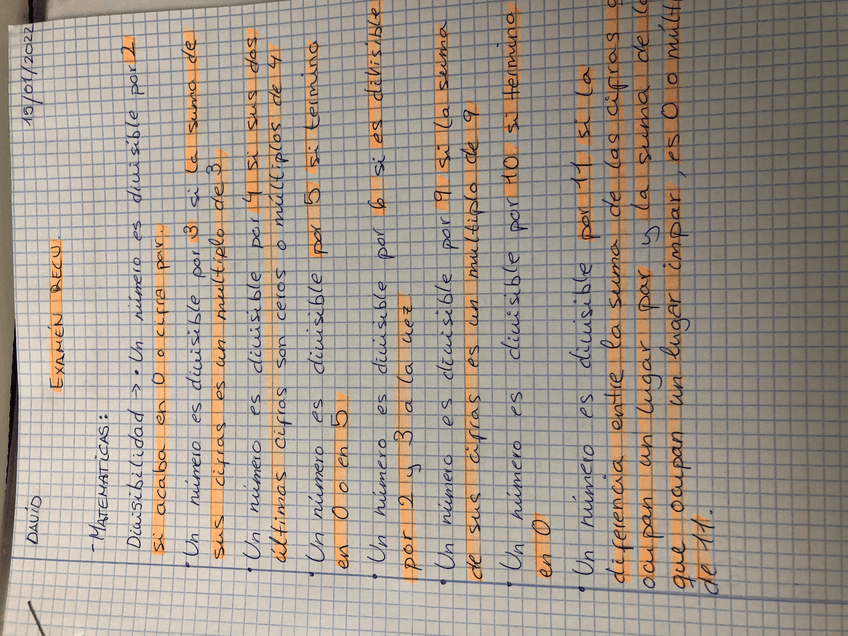 DAVID
19/01/2022
EXAMÉN RECU.
- MATEMÁTICAS:
Divisibilidad → • Un número es divisible por 2
si acaba en 0 o cifra par.
• Un número es divisible por 3 si la suma de
sus cifras es un múltiplo de 3.
• Un número es divisible por 4 si sus dos
últimas cifras son ceros o múltiplos de 4.
• Un número es divisible por 5 si termina
en 0 o en 5
• Un número es divisible por 6 si es divisible
por 2 y 3 a la vez
• Un número es divisible por 9 si la suma
de sus cifras es un multiplo de 9.
• Un número es divisible por 10 si termina
en 0
• Un número es divisible por 11 si la
diferencia entre la suma de las cifras
ocupan un lugar par y la suma de
que ocupan un lugar impar, es 0 o
de 11.